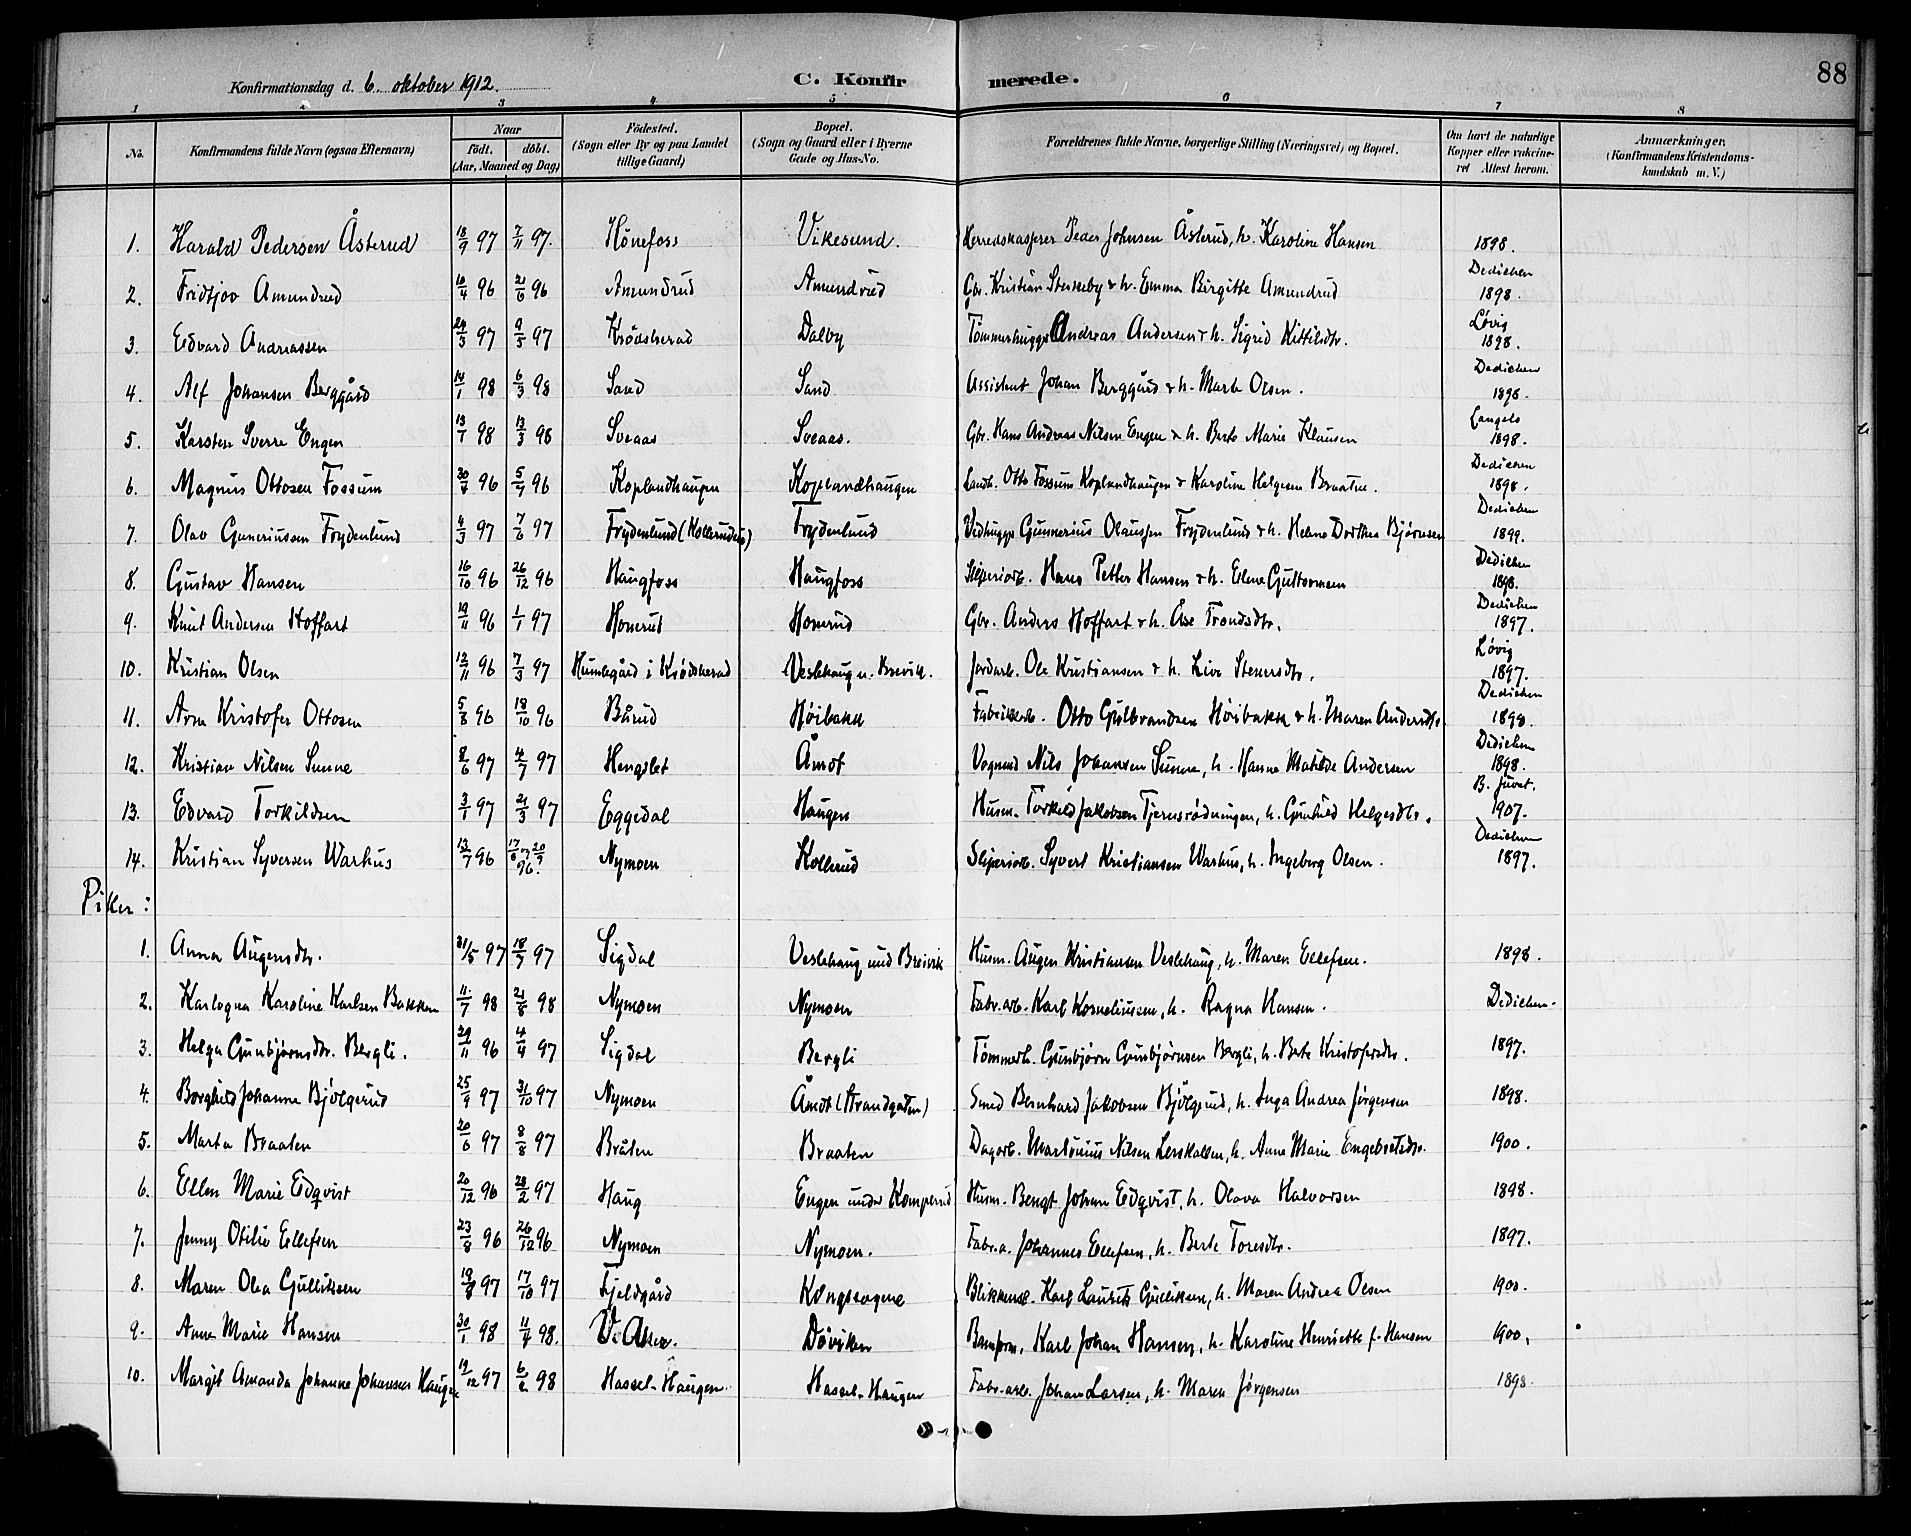 Konfirmationsdag d. 6. oktober 1912. C. Konfirmerede. 88
1 2 3 4 5 6 7 8
No. Konfirmandens fulde Navn (ogsaa Efternavn) Naar født. døbt. (Aar, Maaned og Dag) Fødested. (Sogn eller By og paa Landet tillige Gaard) Bopæl. (Sogn og Gaard eller i Byerne Gade og Hus-No. Forældrenes fulde Navne, borgerlige Stilling (Næringsvei) og Bopæl. Om havt de naturlige Kopper eller vaccineret Attest herom. Anmærkninger. (Konfirmandens Kristendomskundskab m. V.)
1. Harald Pedersen Åsterud 18/9 97 7/11 97. Hønefoss Vikesund. Herredskasserer Peder Johnsen Åsterud, h. Karoline Hansen 1898. Dedichen
2. Fridtjov Amundrud 10/4 96 21/6 96 Amundrud Amundrud Gbr. Kristian Stenseby & h. Emma Birgitte Amundrud 1898. Løvig
3. Edvard Andreassen 24/3 97 9/5 97 Krødsherad Dalby Tømmerhugger Andreas Andersen & h. Sigrid Kittilsdtr. 1898. Dedichen
4. Alf Johansen Berggård 14/1 98 6/3 98 Sand Sand Assistent Johan Berggård & h. Marte Olsen. 1898.
5. Karsten Sverre Engen 13/1 98 13/3 98 Sveaas Sveaas. Gbr. Hans Andreas Nilsen Engen & h. Berte Marie Klausen 1898. Dedichen
6. Magnus Ottosen Fossum 30/4 96 5/7 96 Koplandhaugen Koplandhaugen Landh. Otto Fossum Koplandhaugen & Karoline Helgesen Braaten. 1898. Dedichen
7. Olav Guneriussen Frydenlund 4/3 97 7/6 97 Frydenlund Frydenlund Vedhugger Gunnerius Olaussen Frydenlund & h. Helene Dorthea Bjørnsen 1899. Dedichen
8. Gustav Hansen 16/10 96 26/12 96 Haugfoss Haugfoss Sliperiarb. Hans Petter Hansen & h. Elene Guttormsen 1898. Dedichen
9. Knut Andersen Hoffart 19/11 96 1/1 97 Honerud Honerud Gbr. Anders Hoffart & h. Åse Trondsdtr. 1897. Løvig
10. Kristian Olsen 12/11 96 7/3 97 Humlegård i Krødsherad Veslehaug u. Breivik. Jordarb. Ole Kristiansen & h. Live Stenersdtr. 1897. Dedichen
11. Arne Kristofer Ottosen 5/8 96 18/10 96 Bårud Høibakk Fabrikarb. Otto Gulbrandsen Høibakk & h. Maren Andersdtr. 1898. Dedichen
12. Kristian Nilsen Sunne 8/6 97 4/7 97 Hengslet Åmot Vognmd Nils Johansen Sunne, h. Hanne Matilde Andersen 1898. B. Juvet.
13. Edvard Torkildsen 3/1 97 21/3 97 Eggedal Haugen Husm. Torkild Jakobsen Tjernsrødningen, h. Gunhild Helgesdtr. 1907. Dedichen
14. Kristian Syversen Warhus 13/7 96 17/8 og 20/9 96. Nymoen Kollerud Sliperiarb. Syvert Kristiansen Warhus, h. Ingeborg Olsen. 1897.
Piker:
1. Anna Augensdtr. 31/5 97 18/7 97 Sigdal Veslehaug und Breivik Husm. Augen Kristiansen Veslehaug, h. Maren Ellefsen. 1898.
2. Karlogna Karoline Karlsen Bakken 11/7 98 21/8 98 Nymoen Nymoen Fabr.arb. Karl Korneliussen, h. Ragna Hansen. Dedichen.
3. Helga Gunbjørnsdtr. Bergli. 29/11 96 4/4 97 Sigdal Bergli Tømmerh. Gunbjørn Gunbjørnsen Bergli, h. Berte Kristofersdtr. 1897.
4. Borghild Johanne Bjølgerud 25/9 97 31/10 97 Nymoen Åmot (Strandgaten) Smed Bernhard Jakobsen Bjølgerud, h. Inga Andrea Jørgensen 1898.
5. Marta Braaten 20/6 97 8/8 97 Bråten Braaten Dagarb. Martinius Nilsen Lerskallen, h. Anne Marie Engebretsdtr. 1900.
6. Ellen Marie Edqvist 20/12 96 28/2 97 Haug Engen under Komperud Husm. Bengt Johan Edqvist, h. Olava Halvorsen 1898.
7. Jenny Otilie Ellefsen 23/8 96 26/12 96 Nymoen Nymoen. Fabr.a. Johannes Ellefsen, h. Berte Toresdtr. 1897.
8. Maren Olea Gulliksen 19/8 97 17/10 97 Fjeldgård Kongsvogne Blikkensl. Karl Laurits Gulliksen, h. Maren Andrea Olsen 1900.
9. Anne Marie Hansen 30/1 98 11/4 98. V. Aker. Døviken Banform. Karl Johan Hansen, h. Karoline Henriette f. Hansen 1900.
10. Margit Amanda Johanne Johansen Haugen 19/12 97 6/2 98 Hassel-Haugen Hassel-Haugen Fabr.arb. Johan Larsen, h. Maren Jørgensen 1898.